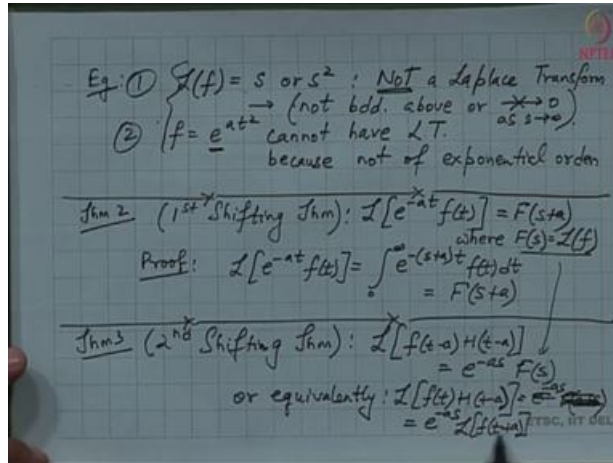 NPTEL
Eg: ① L(f) = s or s² : NOT a Laplace Transform
→ (not bdd. above or ↛ 0 as s→∞)
② f = e^{at²} cannot have LT.
because not of exponential order
Thm 2 (1st Shifting Thm): L[e^{-at} f(t)] = F(s+a)
where F(s) = L(f)
Proof: L[e^{-at} f(t)] = ∫₀^∞ e^{-(s+a)t} f(t) dt
= F(s+a)
Thm 3 (2nd Shifting Thm): L[f(t-a) H(t-a)]
= e^{-as} F(s)
or equivalently: L[f(t) H(t-a)] = e^{-as}
= e^{-as} L[f(t+a)]
ETSC, IIT DEL